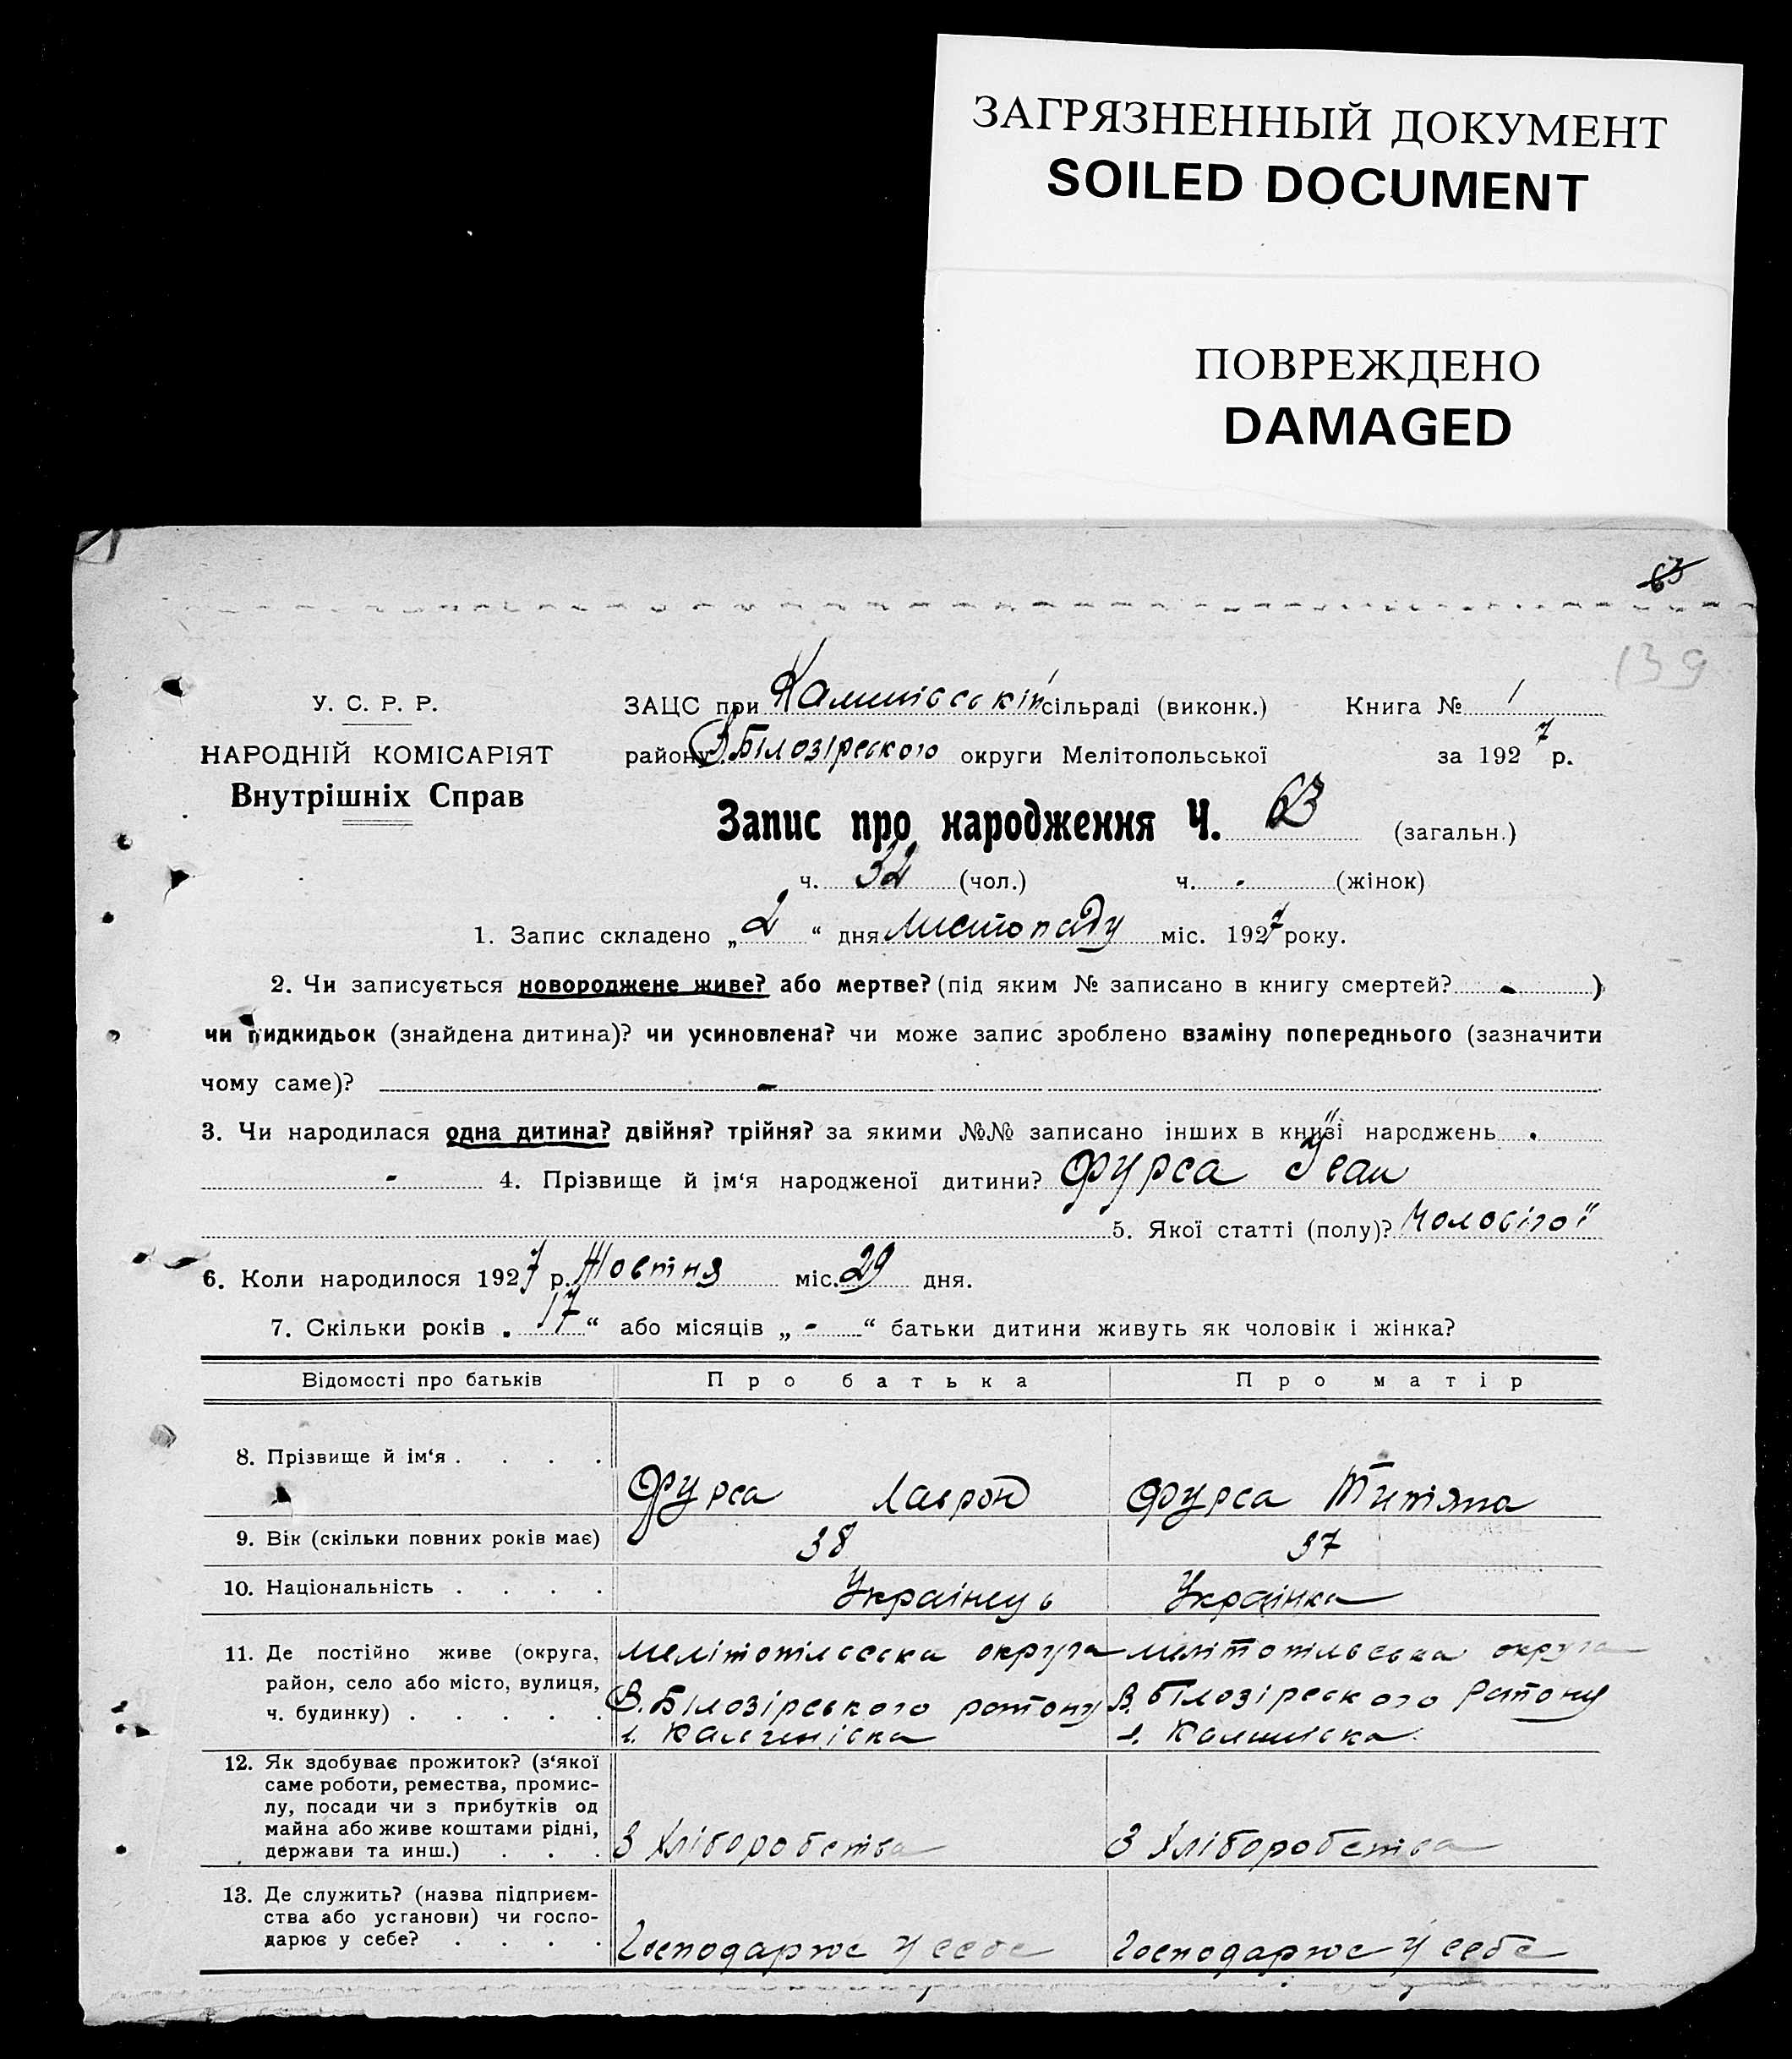 ЗАГРЯЗНЕННЫЙ ДОКУМЕНТ
SOILED DOCUMENT
ПОВРЕЖДЕНО
DAMAGED
63
139
У. С. Р. Р.
НАРОДНІЙ КОМІСАРІЯТ
Внутрішніх Справ
ЗАЦС при Камишівській сільраді (виконк.) Книга № 1
району В. Білозірського округи Мелітопольської за 1927 р.
Запис про народження Ч. 63 (загальн.)
ч. 32 (чол.) ч. - (жінок)
1. Запис складено „ 2 “ дня Листопаду міс. 1927 року.
2. Чи записується новороджене живе? або мертве? (під яким № записано в книгу смертей? - )
чи підкидьок (знайдена дитина)? чи усиновлена? чи може запис зроблено взаміну попереднього (зазначити
чому саме)? -
3. Чи народилася одна дитина? двійня? трійня? за якими №№ записано інших в книзі народжень -
- 4. Прізвище й ім‘я народженої дитини? Фурса Іван
5. Якої статті (полу)? Чоловічої
6. Коли народилося 1927 р. Жовтня міс. 29 дня.
7. Скільки років „ 17 “ або місяців „ - “ батьки дитини живуть як чоловік і жінка?
Відомості про батьків Про батька Про матір
8. Прізвище й ім‘я . . . . Фурса Лаврон Фурса Титяна
9. Вік (скільки повних років має) 38 37
10. Національність . . . . Українець Українка
11. Де постійно живе (округа, район, село або місто, вулиця, ч. будинку) . . . . .
Мелітопільська округа
В. Білозірського району
с. Камишівка
Мелітопільська округа
В. Білозірського району
с. Камишівка
12. Як здобуває прожиток? (з‘якої саме роботи, ремества, промис-
лу, посади чи з прибутків од
майна або живе коштами рідні,
держави та инш.) . . . З Хліборобства З Хліборобства
13. Де служить? (назва підприєм-
ства або установи) чи госпо-
дарює у себе? . . . . Господарює у себе Господарює у себе